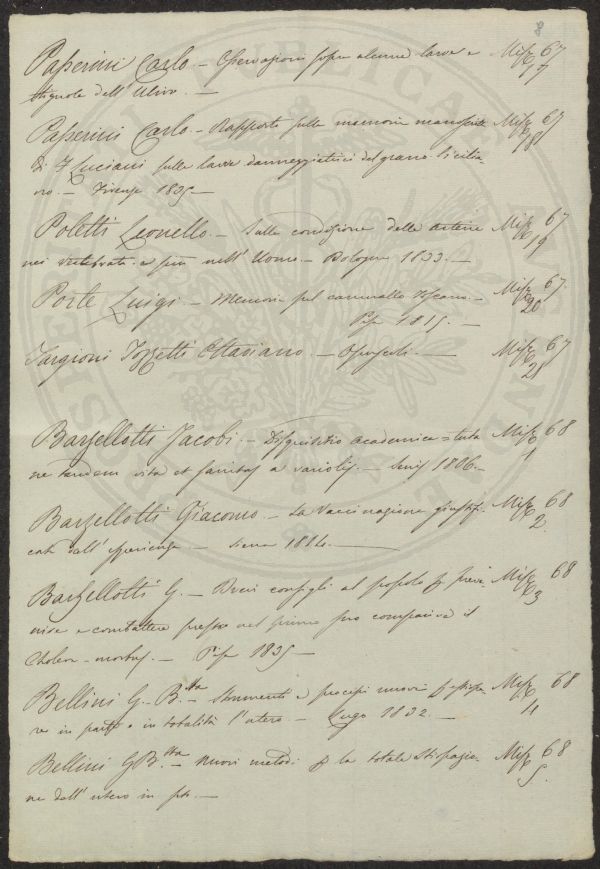 8
Passerini Carlo - Osservazioni sopra alcune larve e Misc. 67
tignole dell' Ulivo. - 17
Passerini Carlo - Rapporto sulla memoria manoscritta Misc. 67
di F. Luciani sulle larve danneggiatrici del grano sicilia- 18
no. - Firenze 1835 -
Poletti Leonello. - Sulla condizione delle arterie Misc. 67
nei vertebrati e più nell' Uomo. - Bologna 1833. - 19
Porte Luigi - Memoria sul canavallo Toscano. - Misc. 67.
Pisa 1815. - 20
Targioni Tozzetti Ottaviano. - Opuscoli. - Misc. 67
21
Barzellotti Jacobi. - Disquisitio academica = tuta Misc. 68
ne tandem vita et sanitas a variolis. - Senis 1806. - 1
Barzellotti Giacomo - La Vaccinazione giustifi- Misc. 68
cata dall' esperienza - Siena 1814. - 2.
Barzellotti G. - Brevi consigli al popolo p. preve- Misc. 68
nire e combattere presto nel primo suo comparire il 3
Cholera-morbus. - Pisa 1835 -
Bellini G. B.tta - Strumenti e processi nuovi p. estirpa- Misc. 68
re in parte o in totalità l'utero - Lugo 1832. - 4
Bellini G B.tta - Nuovi metodi p. la totale estirpazio- Misc. 68
ne dell' utero in sito. - 5.